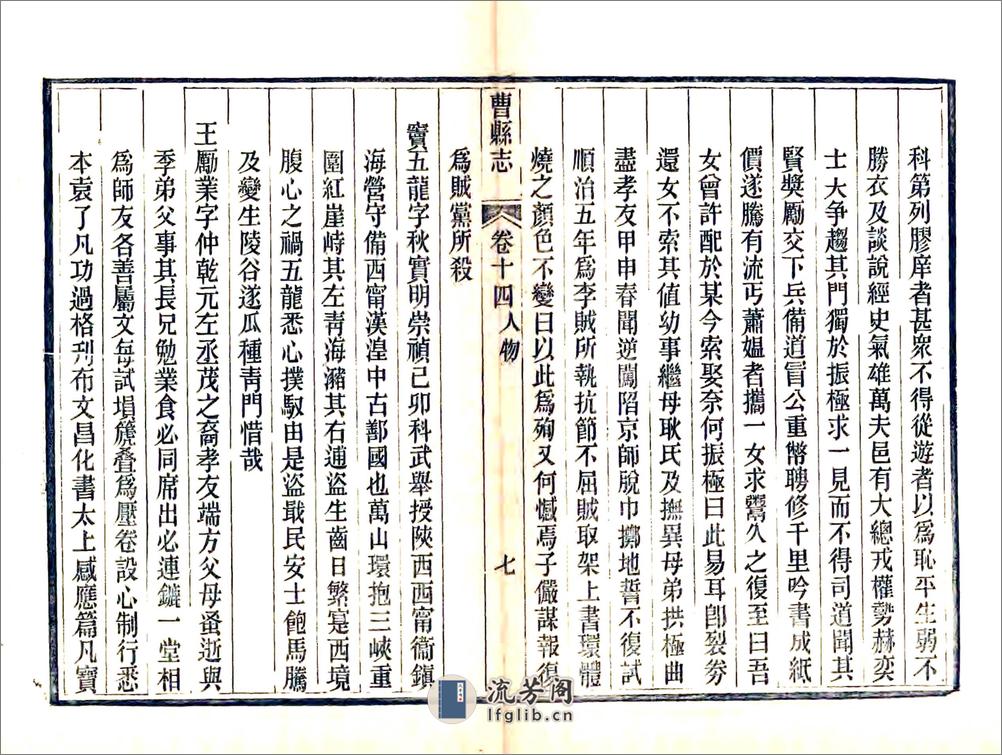 科第列膠庠者甚衆不得從遊者以爲恥平生弱不
勝衣及談說經史氣雄萬夫邑有大總戎權勢赫奕
士大爭趨其門獨於振極求一見而不得司道聞其
賢奬勵交下兵備道冒公重幣聘修千里吟書成紙
價遂騰有流丐蕭媼者攜一女求鬻久之復至曰吾
女曾許配於某今索娶奈何振極曰此易耳卽裂券
還女不索其值幼事繼母耿氏及撫異母弟拱極曲
盡孝友甲申春聞逆闖陷京師脫巾擲地誓不復試
順治五年爲李賊所執抗節不屈賊取架上書環體
燒之顏色不變曰以此爲殉又何憾焉子儼謀報復
曹縣志
卷十四 人物
七
爲賊黨所殺
竇五龍字秋實明崇禎己卯科武舉授陝西西甯衞鎭
海營守備西甯漢湟中古鄯國也萬山環抱三峽重
圍紅崖峙其左靑海瀦其右逋盜生齒日繁寔西境
腹心之禍五龍悉心撲馭由是盜戢民安士飽馬騰
及變生陵谷遂瓜種靑門惜哉
王勵業字仲乾元左丞茂之裔孝友端方父母蚤逝與
季弟父事其長兄勉業食必同席出必連鑣一堂相
爲師友各善屬文每試塤篪疊爲壓卷設心制行悉
本袁了凡功過格刋布文昌化書太上感應篇凡寶
流芳閣
lfglib.cn